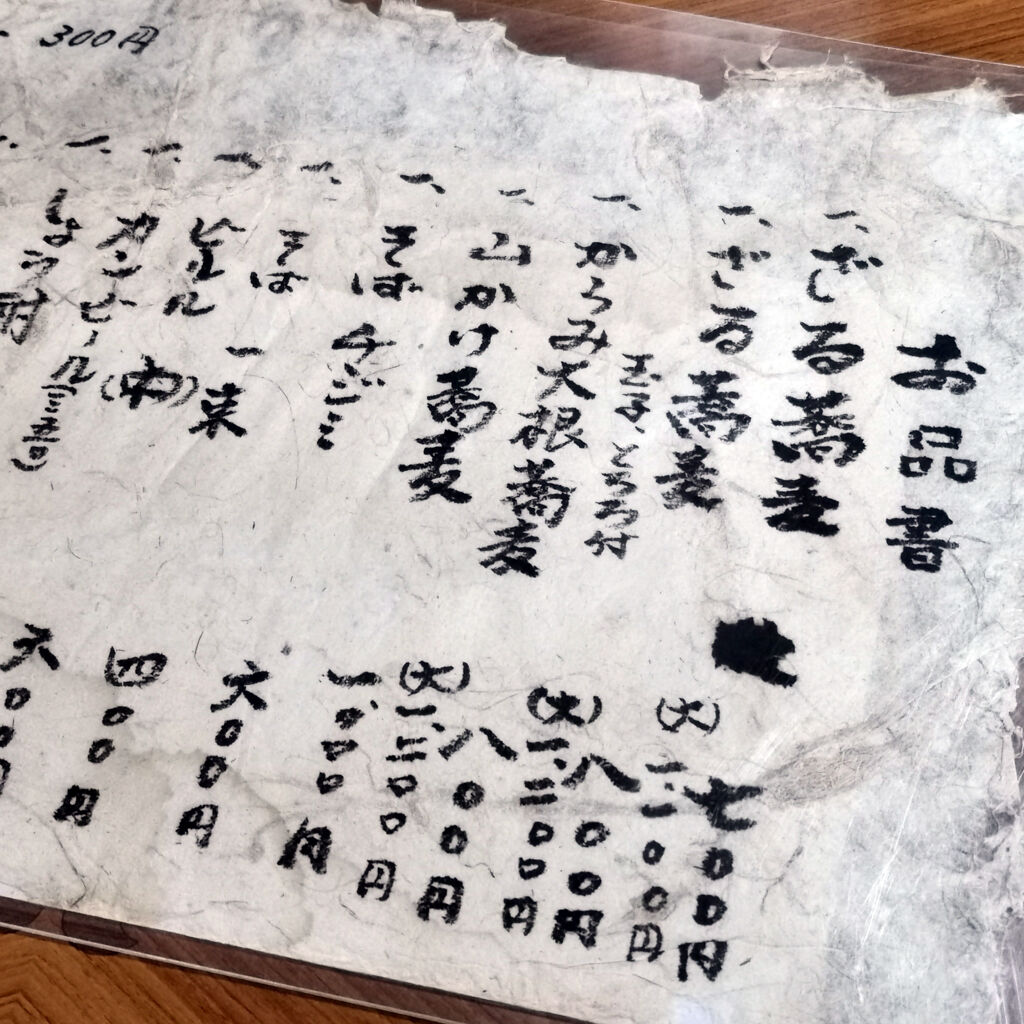 お品書
一、ざる蕎麦
七〇〇円
(大)一、一〇〇円
一、ざる蕎麦
玉子、とろろ付
八〇〇円
一、からみ大根蕎麦
(大)一、二〇〇円
一、山かけ蕎麦
八〇〇円
(大)一、二〇〇円
一、そばチヂミ
一、〇〇〇円
一、そば 一束
一、ビール (中)
六〇〇円
一、カンビール(三五〇)
四〇〇円
一、しょう酎
六〇〇円
300円